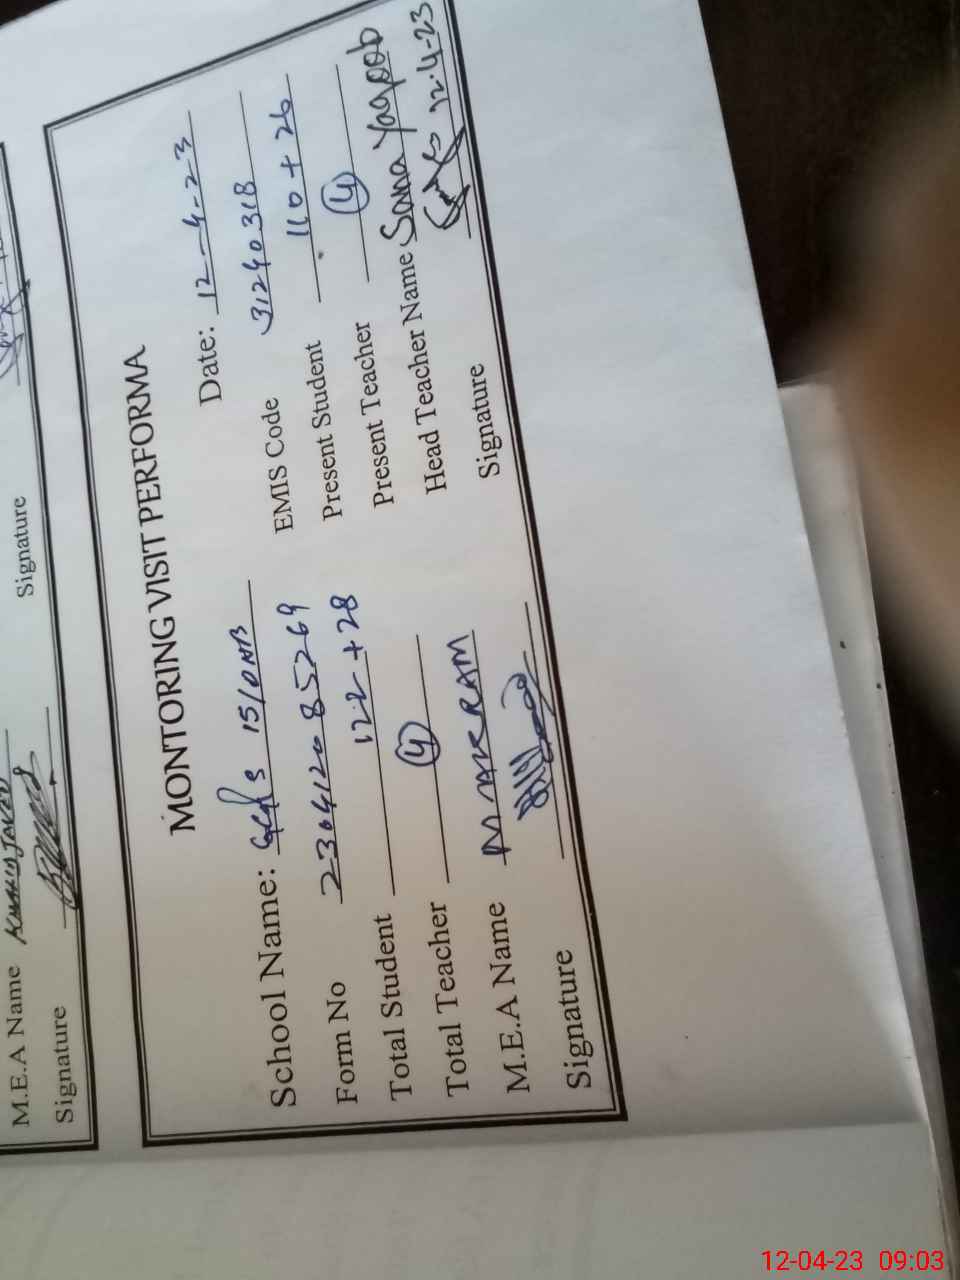 Signature
M.E.A Name
Signature
MONTORING VISIT PERFORMA
Date: 12-4-23
School Name: GGPS 15/DNB
EMIS Code 31240318
Form No 23041208S269
Present Student 110 + 26
Total Student 122 + 28
Present Teacher 4
Total Teacher 4
Head Teacher Name Sana Yaqoob
M.E.A Name M AKRAM
Signature 12.4-23
Signature
12-04-23 09:03